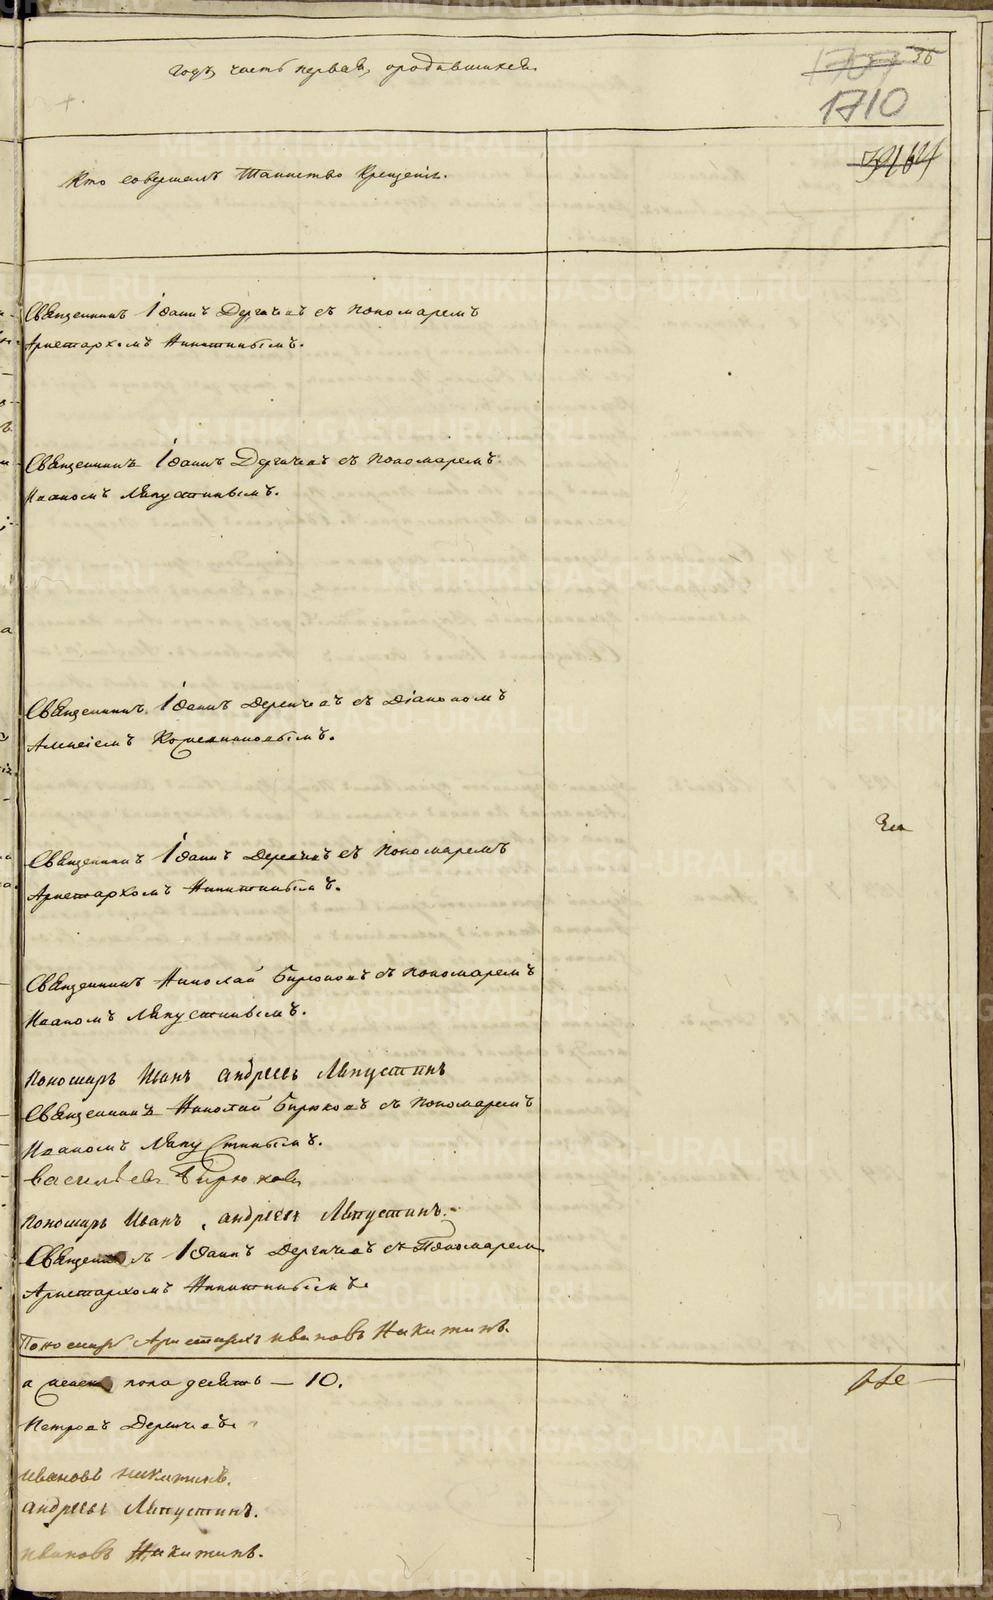 годъ, часть первая, о родившихся.
36
1710
Кто совершалъ Таинство Крещенія.
Священникъ Іоаннъ Дергачевъ съ пономаремъ
Аристархомъ Никитинымъ.
Священникъ Іоаннъ Дергачевъ съ пономаремъ
Иваномъ Ляпустинымъ.
Священникъ Іоаннъ Дергачевъ съ Діакономъ
Священникъ Іоаннъ Дергачевъ съ пономаремъ
Аристархомъ Никитинымъ.
Священникъ Николай Бирюковъ съ пономаремъ
Иваномъ Ляпустинымъ.
Пономарь Иванъ Андреевъ Ляпустинъ
Священникъ Николай Бирюковъ съ пономаремъ
Иваномъ Ляпустинымъ.
Васильевъ Бирюковъ
Пономарь Иванъ Андреевъ Ляпустинъ.
Іоаннъ Дергачевъ съ Пономаремъ
Аристархомъ Никитинымъ.
Пономарь Аристархъ Ивановъ Никитинъ.
а пола десять — 10.
Петровъ Дергачевъ
Ивановъ Никитинъ.
Андреевъ Ляпустинъ.
Ивановъ Никитинъ.
METRIKI.GASO-URAL.RU